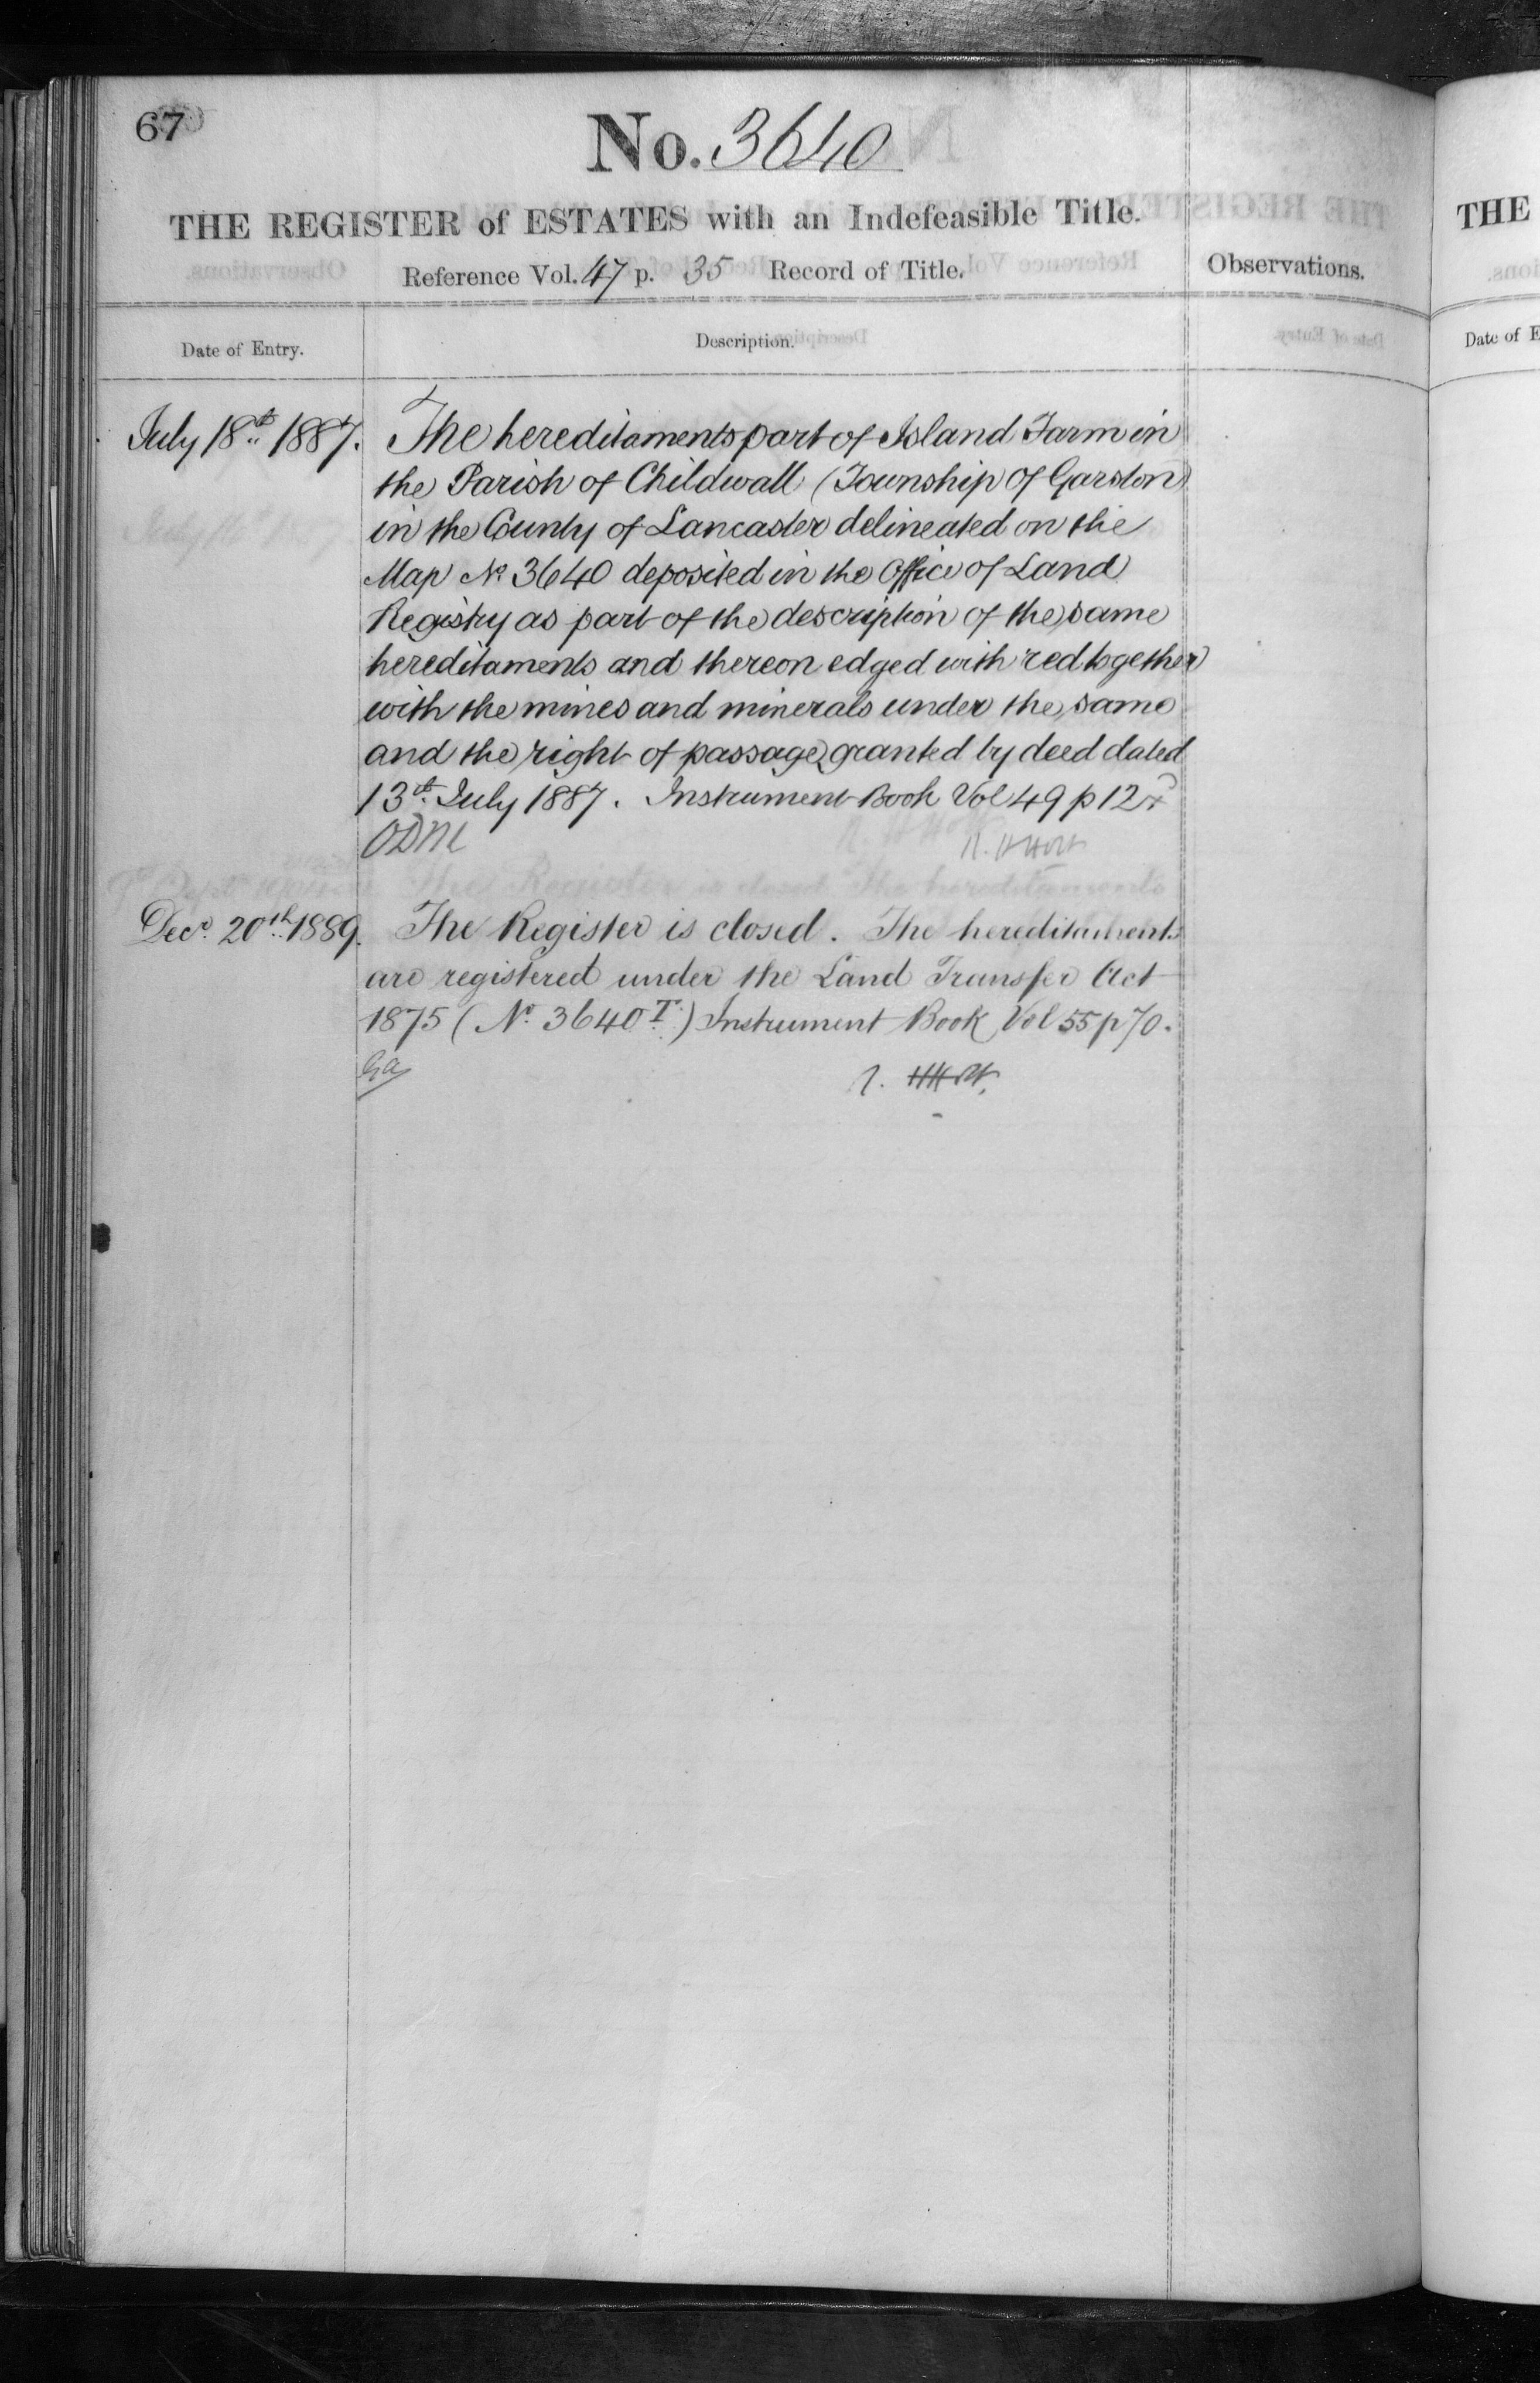 67
No. 3640
THE REGISTER of ESTATES with an Indefeasible Title.
Reference Vol. 47 p. 35 Record of Title.
Observations.
Date of Entry.
Description.
July 18th 1887. The hereditaments part of Island Farm in
the Parish of Childwall (Township of Garston)
in the County of Lancaster delineated on the
Map No 3640 deposited in the Office of Land
Registry as part of the description of the same
hereditaments and thereon edged with red together
with the mines and minerals under the same
and the right of passage granted by deed dated
13th July 1887. Instrument Book Vol 49 p 12
Decr 20th 1889. The Register is closed. The hereditaments
are registered under the Land Transfer Act
1875 (No 3640 T.) Instrument Book Vol 55 p 70.
THE
Date of E